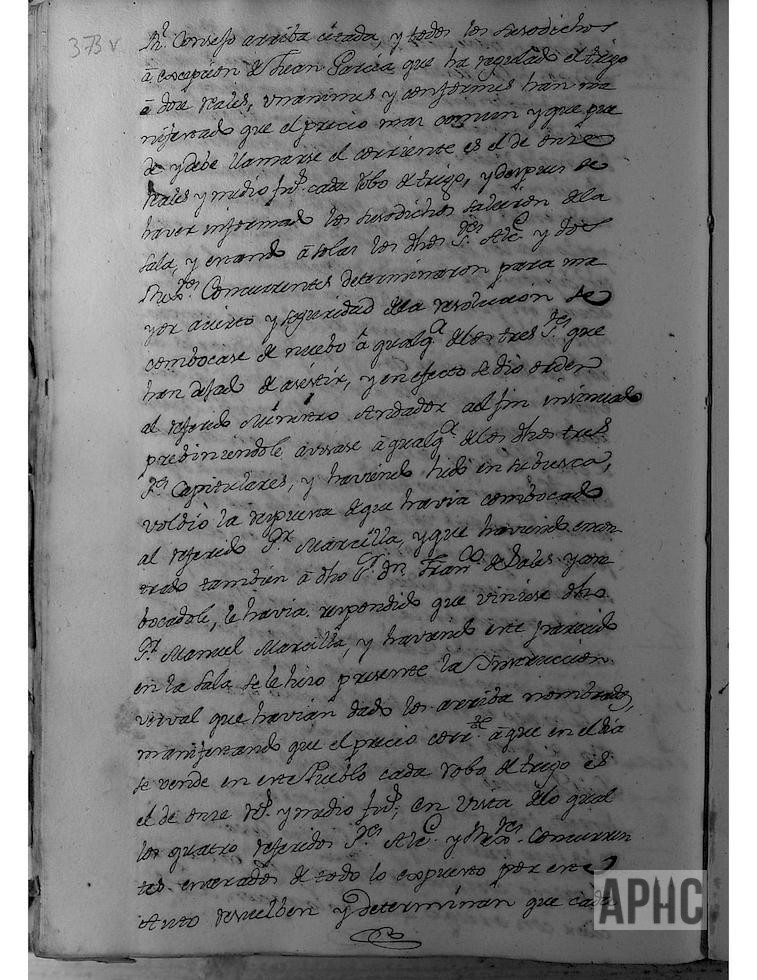 373 v
Rl. Consejo arriba citada, y todos los susodichos
á excepcion de Juan Garcia que ha regulado el trigo
á doze reales, vnanimes y conformes han ma
nifestado que el precio mas comun y que pue
de y debe llamarse el corriente es el de onze
reales y medio ftes. cada robo de trigo, y despues de
haver informado los susodichos salieron de la
sala, y estando á solas los dhos Ses. Alce. y dos
Rexres. Concurrentes determinaron para ma
yor acierto y seguridad de la resolucion se
combocase de nuebo á qualqa. de los tres Ses. que
han dejado de asistir, y en efecto se dio orden
al referido Ministro Andador al fin insinuado
prebiniendole avisase á qualqa. de los dhos tres
Ss. Capitulares, y haviendo hido en su busca,
volvió la respuesta de que havia combocado
al referido Sr. Marcilla, y que haviendo encon
trado tambien á dho Sr. Dn. Franco. de Sales y com
bocadole, le havia respondido que viniese dho
Sr. Manuel Marcilla, y haviendo este parecido
en la Sala se le hizo presente la Instruccion
verval que havian dado los arriba nombrados,
manifestando que el precio corrte. á que en el dia
se vende en este Pueblo cada robo de trigo es
el de onze rs. y medio ftes; en vista de lo qual
los quatro referidos Ses. Alce. y Rexres. concurren
tes enterados de todo lo expuesto por este
Auto resuelben y determinan que cada
APHC